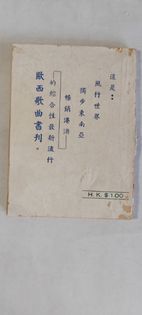 這是：
風行世界
獨步東南亞
暢銷港澳
的綜合性最新流行
歐西歌曲書刊。
H. K. $ 1.00